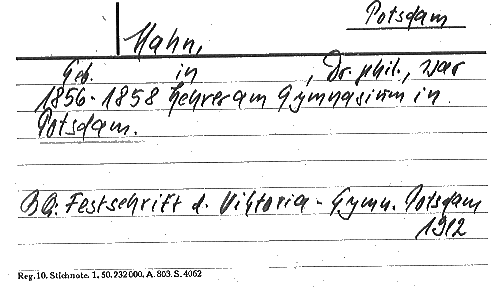 Potsdam
Hahn,
Geb. in , Dr. phil., war
1856-1858 Lehrer am Gymnasium in
Potsdam.
BQ: Festschrift d. Viktoria-Gymn. Potsdam
1912
Reg. 10. Stichnote. 1, 50. 232000. A. 803. S. 4062